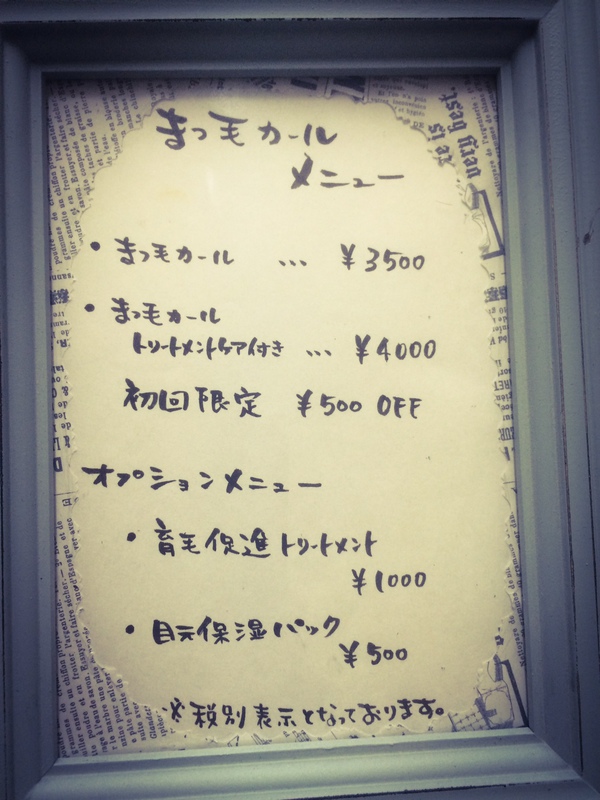 まつ毛カール
メニュー
・まつ毛カール … ¥3500
・まつ毛カール
トリートメントケア付き … ¥4000
初回限定 ¥500 OFF
オプションメニュー
・育毛促進トリートメント
¥1000
・目元保湿パック
¥500
※税別表示となっております。